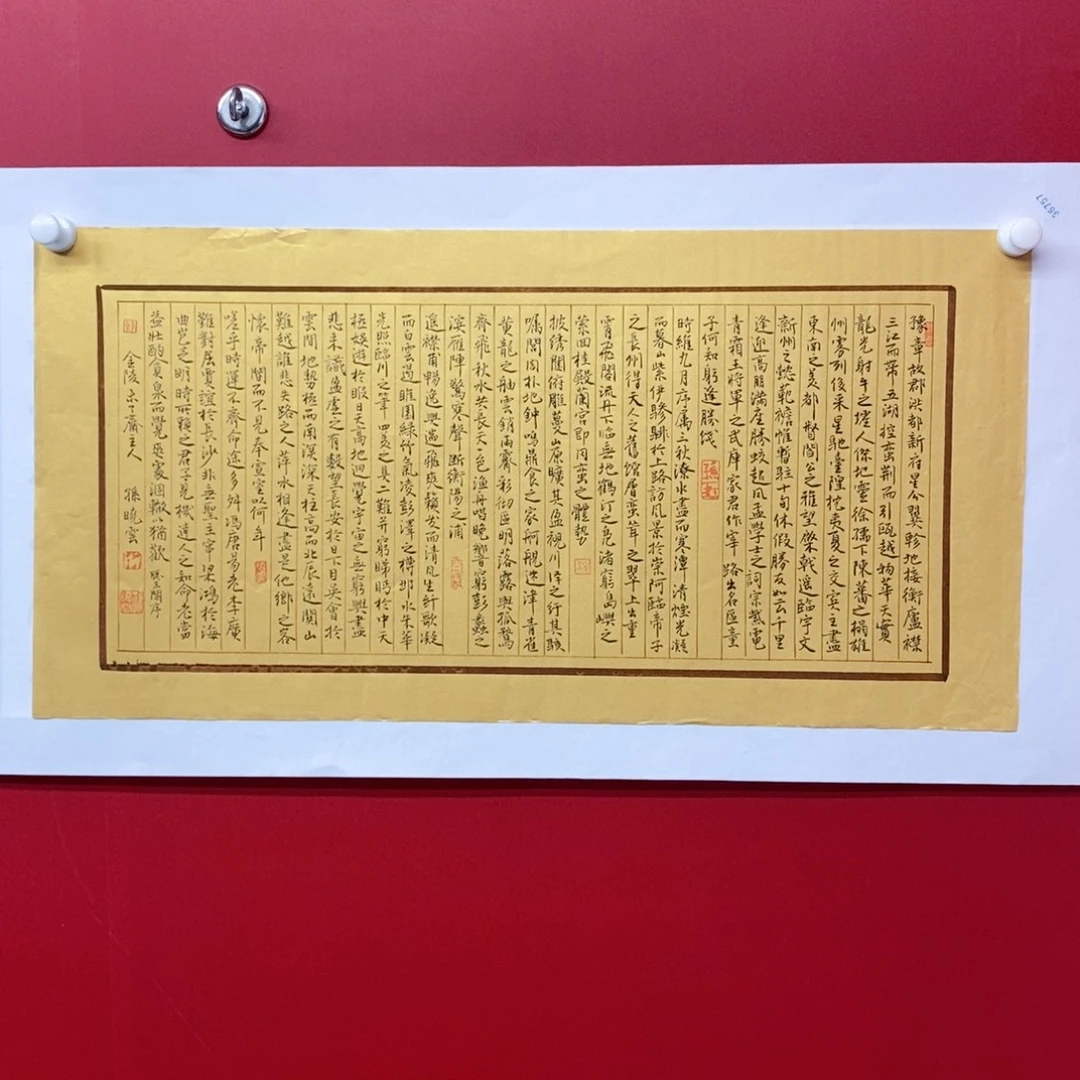 豫章故郡洪都新府星分翼軫地接衡廬襟
三江而帶五湖控蠻荆而引甌越物華天寶
龍光射牛之墟人傑地靈徐孺下陳蕃之榻雄
州霧列俊采星馳臺隍枕夷夏之交賓主盡
東南之美都督閻公之雅望棨戟遥臨宇文
新州之懿範襜帷暫駐十旬休假勝友如云千里
逢迎高朋滿座騰蛟起鳳孟學士之詞宗紫電
青霜王將軍之武庫家君作宰路出名區童
子何知躬逢勝餞
時維九月序属三秋潦水盡而寒潭清煙光凝
而暮山紫伊驂騑於上路訪風景於崇阿臨帝子
之長洲得天人之舊館層巒聳翠上出重
霄飛閣流丹下臨無地鶴汀之凫渚窮島嶼之
縈回桂殿蘭宮即岡巒之體勢
披绣闥俯雕甍山原曠其盈視川澤之紆其駭
矚閭閻扑地鐘鳴鼎食之家舸艦迷津青雀
黄龍之舳雲銷雨霽彩彻區明落霞與孤鶩
齊飛秋水共長天一色渔舟唱晚響窮彭蠡之
濱雁陣驚寒聲斷衡陽之浦
遥襟甫暢逸興遄飛爽籟发而清風生纤歌凝
而白雲遏睢園绿竹氣凌彭澤之樽邺水朱華
光照臨川之筆四美具二難并窮睇眄於中天
極娱游於暇日天高地迥覺宇宙之無窮興盡
悲来識盈虚之有數望長安於日下目吴會於
雲間地勢極而南溟深天柱高而北辰遠關山
難越誰悲失路之人萍水相逢盡是他鄉之客
懷帝閽而不見奉宣室以何年
嗟乎時運不齊命途多舛馮唐易老李廣
難對屈賈誼於長沙非無聖主竄梁鴻於海
曲豈乏明時所賴之君子見機達人之知命老當
益壮酌貪泉而覺爽處涸轍以猶歡 滕王閣序
主人 孫曉雲
36757